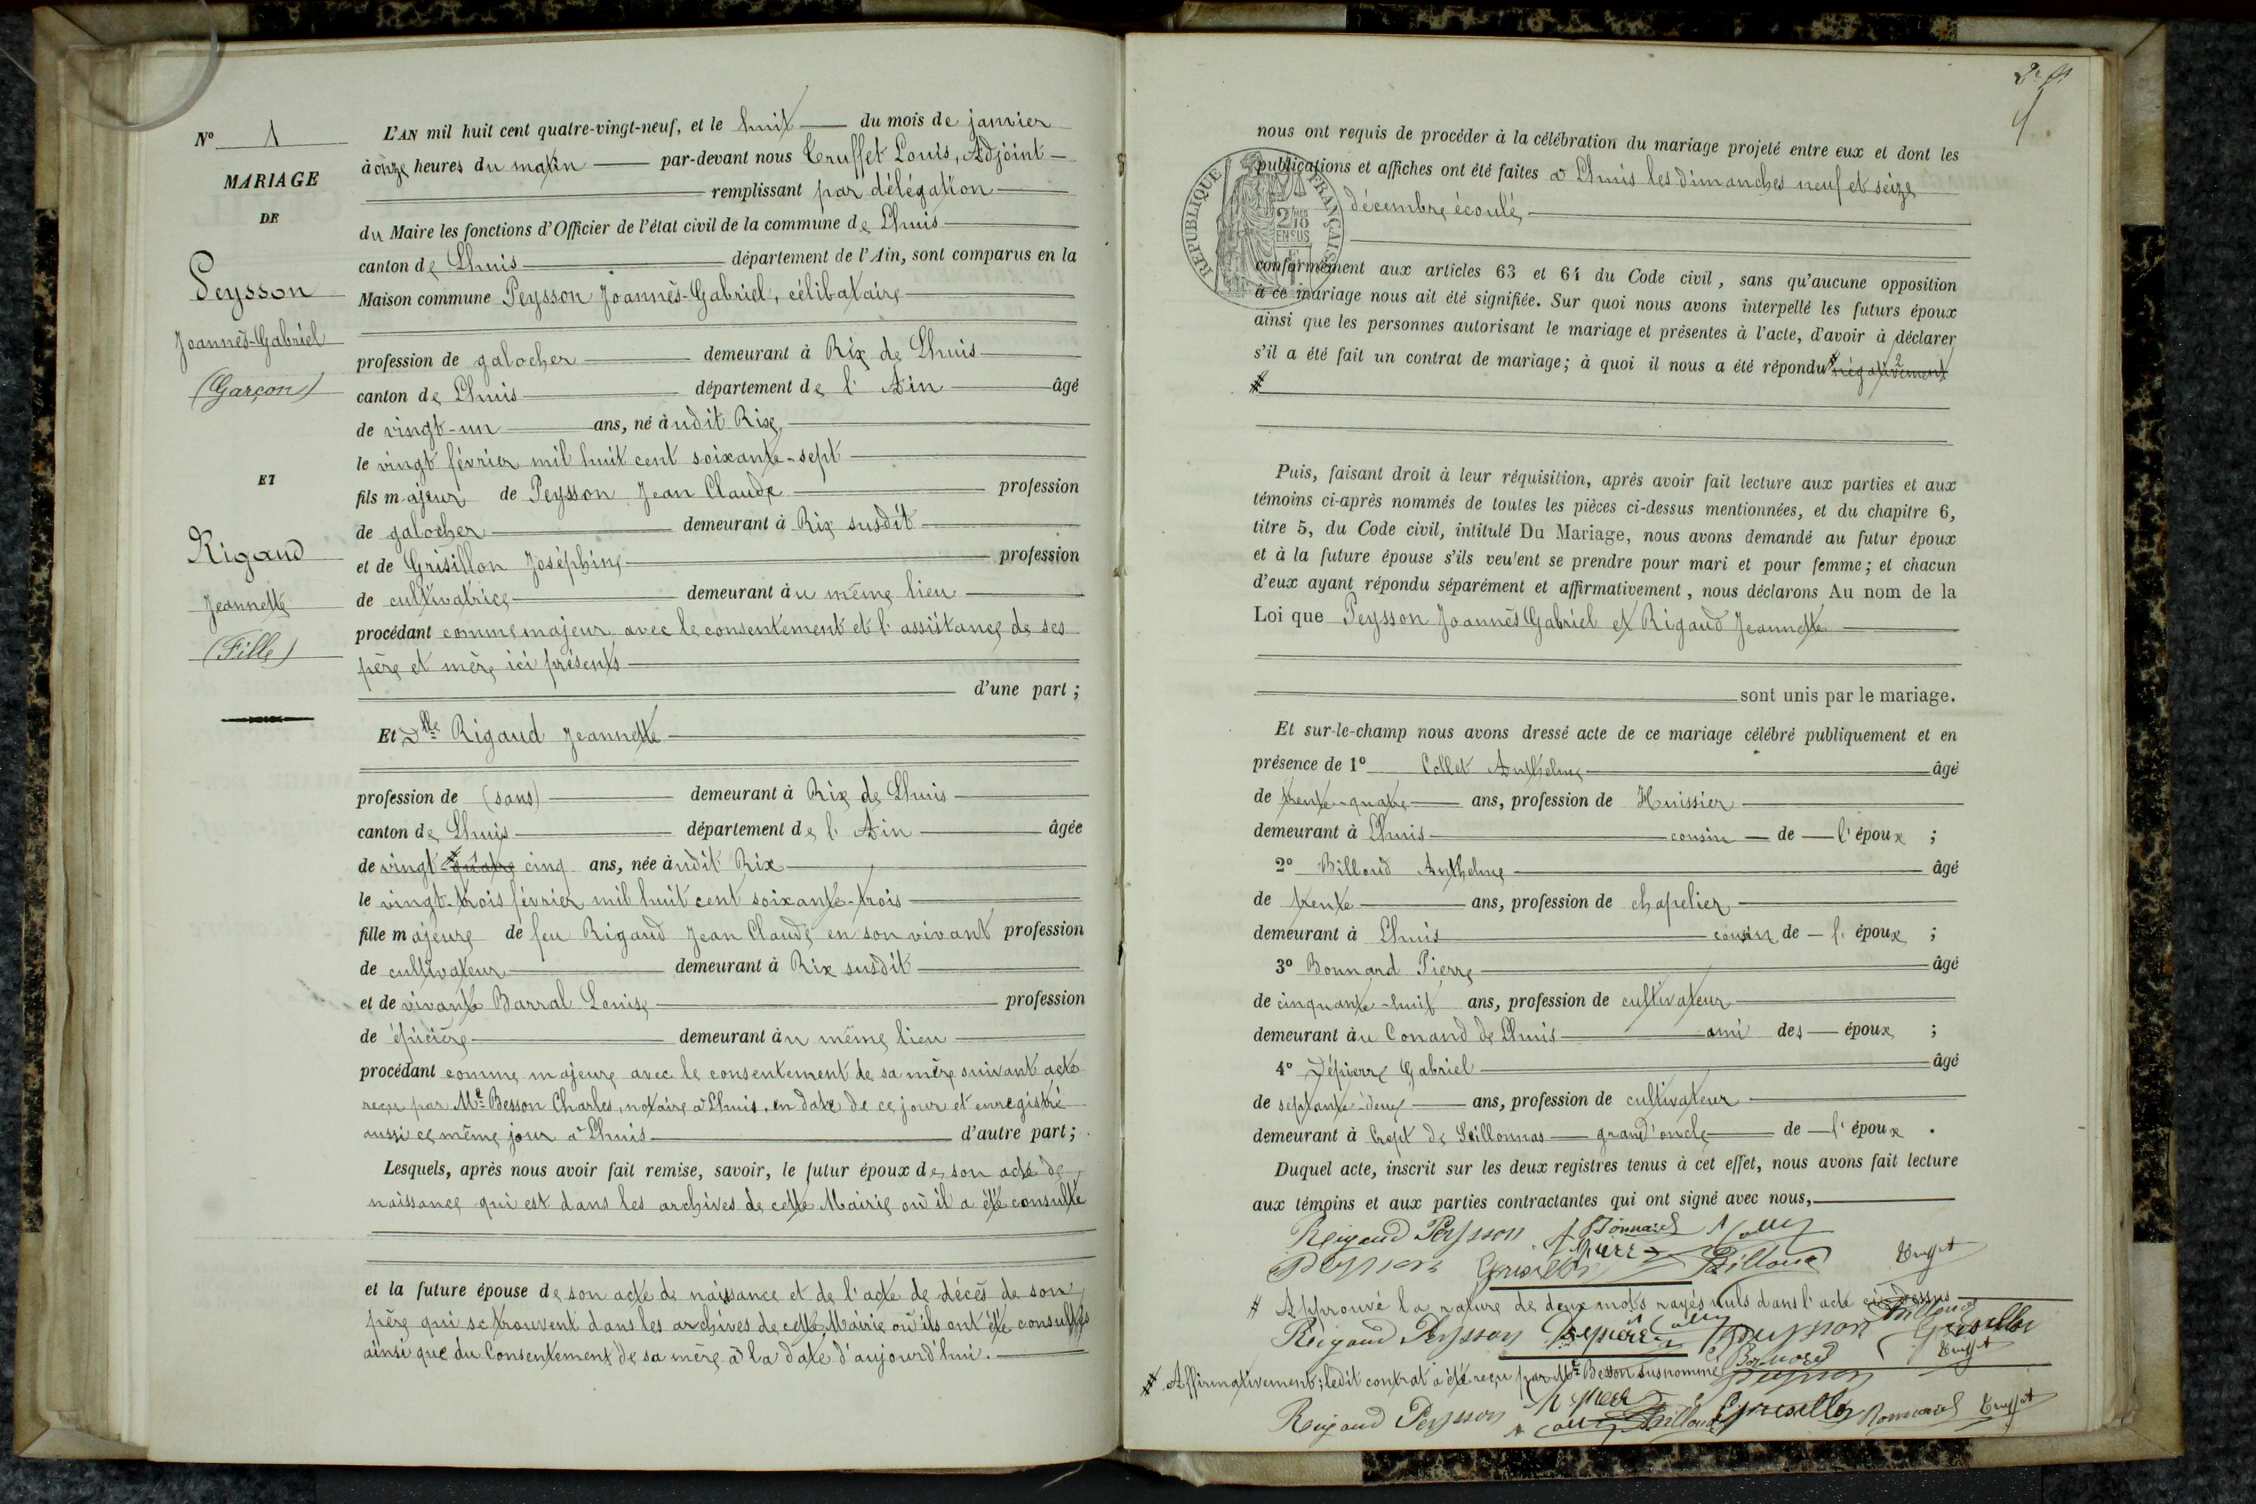 N° 1
MARIAGE
DE
Peysson
Joannès-Gabriel
(Garçon)
ET
Rigaud
Jeannette
(Fille)
L'AN mil huit cent quatre-vingt-neuf, et le huit du mois de janvier
à onze heures du matin par-devant nous Truffet Louis, Adjoint
remplissant par délégation
du Maire les fonctions d'Officier de l'état civil de la commune de Lhuis
canton de Lhuis département de l'Ain, sont comparus en la
Maison commune Peysson Joannès-Gabriel, célibataire
profession de galocher demeurant à Rix de Lhuis
canton de Lhuis département de l'Ain âgé
de vingt-un ans, né àudit Rix,
le vingt février mil huit cent soixante-sept
fils majeur de Peysson Jean Claude profession
de galocher demeurant à Rix susdit
et de Grisillon Joséphine profession
de cultivatrice demeurant àu même lieu
procédant comme majeur avec le consentement et l'assistance de ses
père et mère ici présents
d'une part ;
Et Dlle Rigaud Jeannette
profession de (sans) demeurant à Rix de Lhuis
canton de Lhuis département de l'Ain âgée
de vingt quatre cinq ans, née àudit Rix
le vingt-trois février mil huit cent soixante-trois
fille majeure de feu Rigaud Jean Claude en son vivant profession
de cultivateur demeurant à Rix susdit
et de vivante Barral Louise profession
de épicière demeurant àu même lieu
procédant comme majeure avec le consentement de sa mère suivant acte
reçu par Me Besson Charles, notaire à Lhuis, en date de ce jour et enregistré
aussi ce même jour à Lhuis d'autre part ;
Lesquels, après nous avoir fait remise, savoir, le futur époux de son acte de
naissance qui est dans les archives de cette Mairie où il a été consulté
et la future épouse de son acte de naissance et de l'acte de décès de son
père qui se trouvent dans les archives de cette Mairie où ils ont été consultés
ainsi que du Consentement de sa mère à la date d'aujourd'hui.
nous ont requis de procéder à la célébration du mariage projeté entre eux et dont les
publications et affiches ont été faites à Lhuis les dimanches neuf et seize
décembre écoulé,
RÉPUBLIQUE FRANÇAISE
2/10
EN SUS
conformément aux articles 63 et 64 du Code civil, sans qu'aucune opposition
à ce mariage nous ait été signifiée. Sur quoi nous avons interpellé les futurs époux
ainsi que les personnes autorisant le mariage et présentes à l'acte, d'avoir à déclarer
s'il a été fait un contrat de mariage ; à quoi il nous a été répondu # négativement
#
Puis, faisant droit à leur réquisition, après avoir fait lecture aux parties et aux
témoins ci-après nommés de toutes les pièces ci-dessus mentionnées, et du chapitre 6,
titre 5, du Code civil, intitulé Du Mariage, nous avons demandé au futur époux
et à la future épouse s'ils veulent se prendre pour mari et pour femme ; et chacun
d'eux ayant répondu séparément et affirmativement, nous déclarons Au nom de la
Loi que Peysson Joannès Gabriel et Rigaud Jeannette
sont unis par le mariage.
Et sur-le-champ nous avons dressé acte de ce mariage célébré publiquement et en
présence de 1° Collet Anthelme âgé
de trente-quatre ans, profession de Huissier
demeurant à Lhuis cousin de l'époux ;
2° Billoud Anthelme âgé
de trente ans, profession de chapelier
demeurant à Lhuis cousin de l'époux ;
3° Bonnard Pierre âgé
de cinquante-huit ans, profession de cultivateur
demeurant àu Conand de Lhuis ami des époux ;
4° Dépierre Gabriel âgé
de septante-deux ans, profession de cultivateur
demeurant à Crept de Seillonnas grand'oncle de l'époux.
Duquel acte, inscrit sur les deux registres tenus à cet effet, nous avons fait lecture
aux témoins et aux parties contractantes qui ont signé avec nous,
Reigaud Peysson Bonnard
Peysson Billoud Truffet
# Approuvé la rature de deux mots rayés nuls dans l'acte ci-dessus
Reigaud Peysson Depierre Peysson Billoud
Bonnard Truffet
## Affirmativement ; ledit contrat a été reçu par Me Besson susnommé
Reigaud Peysson Billoud Bonnard Truffet